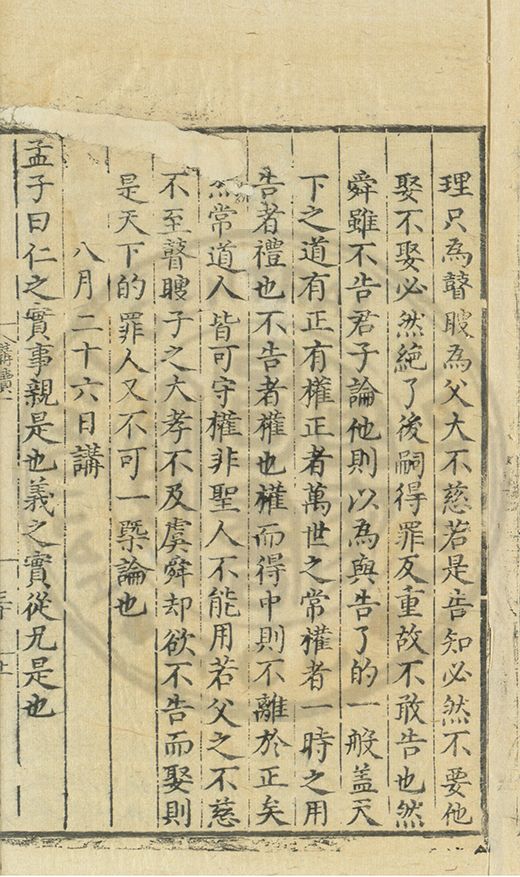 理只為瞽瞍為父大不慈若是告知必然不要他
娶不娶必然絶了後嗣得罪反重故不敢告也然
舜雖不告君子論他則以為與告了的一般盖天
下之道有正有權正者萬世之常權者一時之用
告者禮也不告者權也權而得中則不離於正矣
然常道人皆可守權非聖人不能用若父之不慈
不至瞽瞍子之大孝不及虞舜却欲不告而娶則
是天下的罪人又不可一槩論也
八月二十六日講
孟子曰仁之實事親是也義之實從兄是也